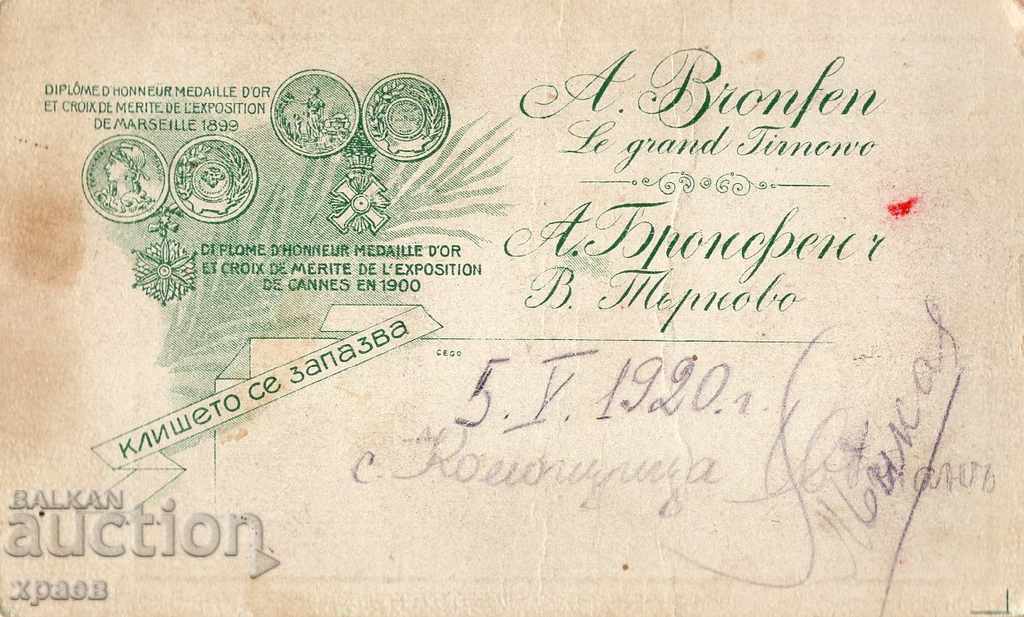 DIPLÔME D'HONNEUR MEDAILLE D'OR
ET CROIX DE MERITE DE L'EXPOSITION
DE MARSEILLE 1899
DIPLOME D'HONNEUR MEDAILLE D'OR
ET CROIX DE MERITE DE L'EXPOSITION
DE CANNES EN 1900
КЛИШЕТО СЕ ЗАПАЗВА
A. Bronfen
Le grand Tirnowo
А. Бронфенъ
В. Търново
GEGO
5. V. 1920 г.
с.
BALKAN
auction
храов